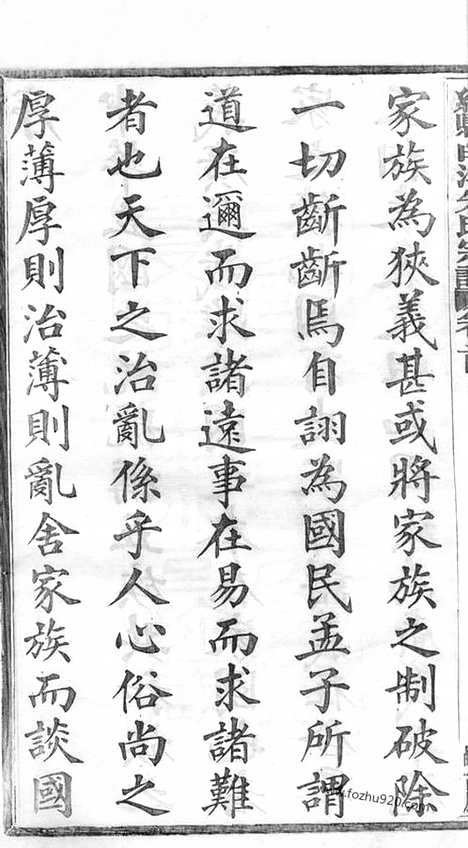 家族為狹義甚或將家族之制破除
一切齗齗焉自詡為國民孟子所謂
道在邇而求諸遠事在易而求諸難
者也天下之治亂係乎人心俗尚之
厚薄厚則治薄則亂舍家族而談國
www.fozhu920.com